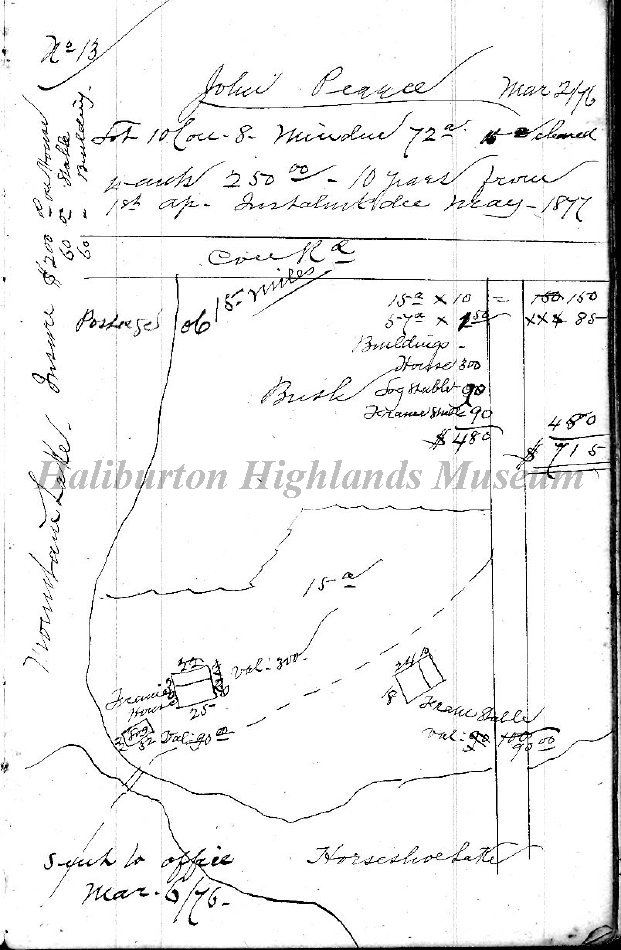 No 13
John Pearce
Mar 2/76
Lot 10 Con. 8 - Minden 72a 15a cleared
wants 250 00 - 10 years from
1st Ap - Instalmt due May - 1877
Insure $200 on House
60 on Stable
60 - Building
Con Rd
15 miles
Postage 06
15a x 10 = 150 150
57a x 1 50 xxx 85
Buildings -
House 300
Log Stable 90
Frame Stable 90
$ 480
480
$ 715
Bush
Haliburton Highlands Museum
Mountain Lake
15a
22
Val: 300
Frame House
25
24
18
Frame Stable
Val: 90 100
90 00
Log
Val 90 00
Sent to office
Mar. 6/76 -
Horseshoe Lake